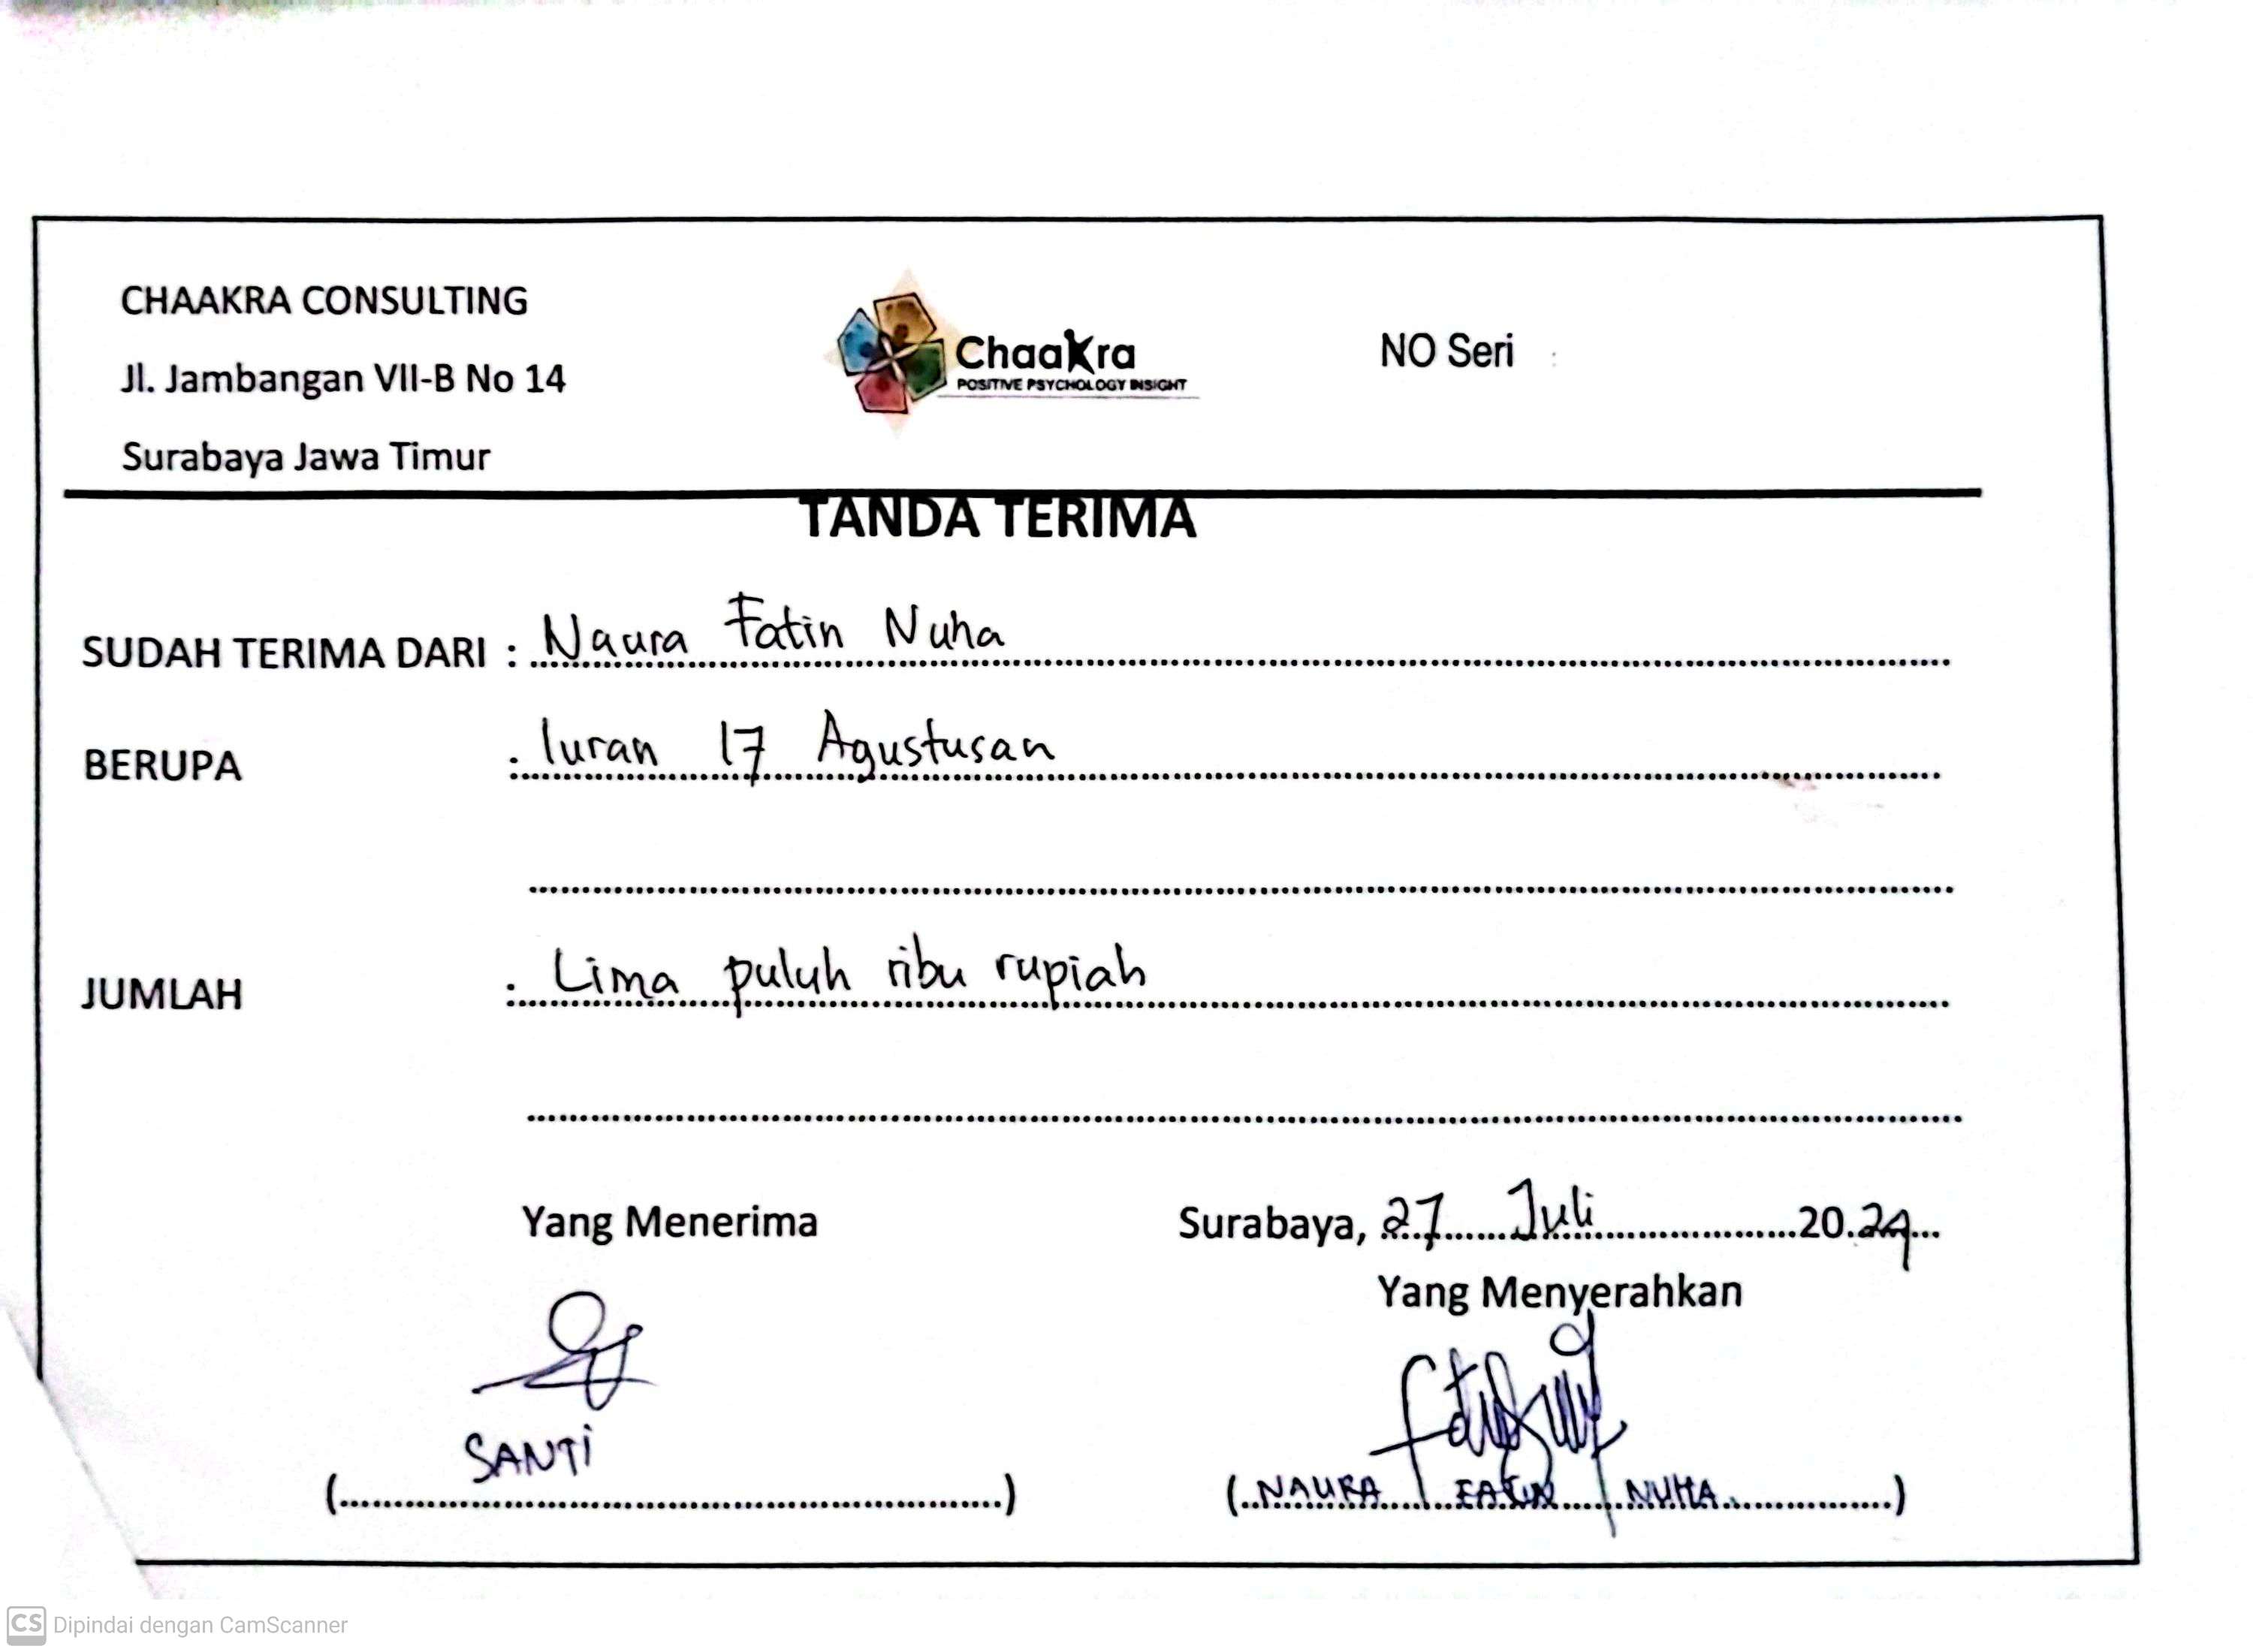 CHAAKRA CONSULTING
Jl. Jambangan VII-B No 14
Surabaya Jawa Timur
Chaakra
POSITIVE PSYCHOLOGY INSIGHT
NO Seri :
TANDA TERIMA
SUDAH TERIMA DARI : Naura Fatin Nuha
BERUPA : Iuran 17 Agustusan
JUMLAH : Lima puluh ribu rupiah
Yang Menerima
Surabaya, 27 Juli 2024
Yang Menyerahkan
SANTi
(NAURA FATIN NUHA)
CS Dipindai dengan CamScanner